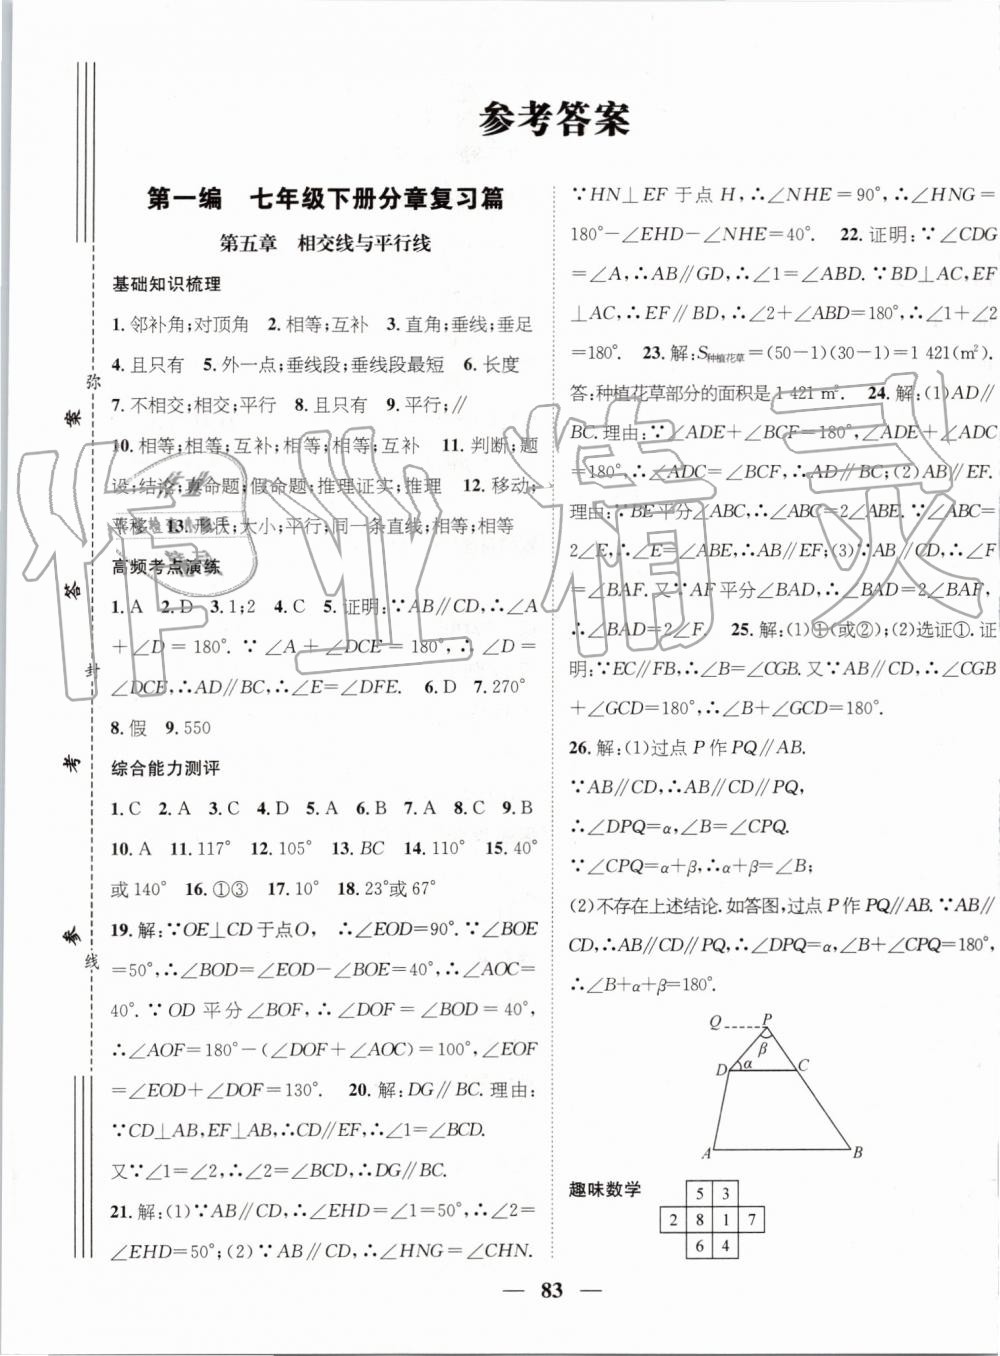 参考答案
第一编　七年级下册分章复习篇
第五章　相交线与平行线
基础知识梳理
1.邻补角;对顶角　2.相等;互补　3.直角;垂线;垂足
4.且只有　5.外一点;垂线段;垂线段最短　6.长度
7.不相交;相交;平行　8.且只有　9.平行;∥
10.相等;相等;互补;相等;相等;互补　11.判断;题
设;结论;真命题;假命题;推理证实;推理　12.移动;
平移　13.形状;大小;平行;同一条直线;相等;相等
高频考点演练
1.A　2.D　3.1;2　4.C　5.证明:∵AB∥CD,∴∠A
+∠D=180°.∵∠A+∠DCE=180°,∴∠D=
∠DCE,∴AD∥BC,∴∠E=∠DFE.　6.D　7.270°
8.假　9.550
综合能力测评
1.C　2.A　3.C　4.D　5.A　6.B　7.A　8.C　9.B
10.A　11.117°　12.105°　13.BC　14.110°　15.40°
或140°　16.①③　17.10°　18.23°或67°
19.解:∵OE⊥CD于点O,　∴∠EOD=90°.∵∠BOE
=50°,∴∠BOD=∠EOD−∠BOE=40°,∴∠AOC=
40°.∵OD平分∠BOF,∴∠DOF=∠BOD=40°,
∴∠AOF=180°−(∠DOF+∠AOC)=100°,∠EOF
=∠EOD+∠DOF=130°.　20.解:DG∥BC.理由:
∵CD⊥AB,EF⊥AB,∴CD∥EF,∴∠1=∠BCD.
又∵∠1=∠2,∴∠2=∠BCD,∴DG∥BC.
21.解:(1)∵AB∥CD,∴∠EHD=∠1=50°,∴∠2=
∠EHD=50°;(2)∵AB∥CD,∴∠HNG=∠CHN.
∵HN⊥EF于点H,∴∠NHE=90°,∴∠HNG=
180°−∠EHD−∠NHE=40°.　22.证明:∵∠CDG
=∠A,∴AB∥GD,∴∠1=∠ABD.∵BD⊥AC,EF
⊥AC,∴EF∥BD,∴∠2+∠ABD=180°,∴∠1+∠2
=180°.　23.解:S种植花草=(50−1)(30−1)=1 421(m²).
答:种植花草部分的面积是1 421 m².　24.解:(1)AD∥
BC.理由:∵∠ADE+∠BCF=180°,∠ADE+∠ADC
=180°,∴∠ADC=∠BCF,∴AD∥BC;(2)AB∥EF.
理由:∵BE平分∠ABC,∴∠ABC=2∠ABE.∵∠ABC=
2∠E,∴∠E=∠ABE,∴AB∥EF;(3)∵AB∥EF,∴∠F
=∠BAF.又∵AF平分∠BAD,∴∠BAD=2∠BAF,
∴∠BAD=2∠F.　25.解:(1)①(或②);(2)选证①.证
明:∵EC∥FB,∴∠B=∠CGB.又∵AB∥CD,∴∠CGB
+∠GCD=180°,∴∠B+∠GCD=180°.
26.解:(1)过点P作PQ∥AB.
∵AB∥CD,∴AB∥CD∥PQ,
∴∠DPQ=α,∠B=∠CPQ.
∵∠CPQ=α+β,∴α+β=∠B;
(2)不存在上述结论.如答图,过点P作PQ∥AB.∵AB∥
CD,∴AB∥CD∥PQ,∴∠DPQ=α,∠B+∠CPQ=180°,
∴∠B+α+β=180°.
Q P
β
D α C
A B
趣味数学
5 3
2 8 1 7
6 4
弥 封 线
参 考 答 案
作业精灵
— 83 —